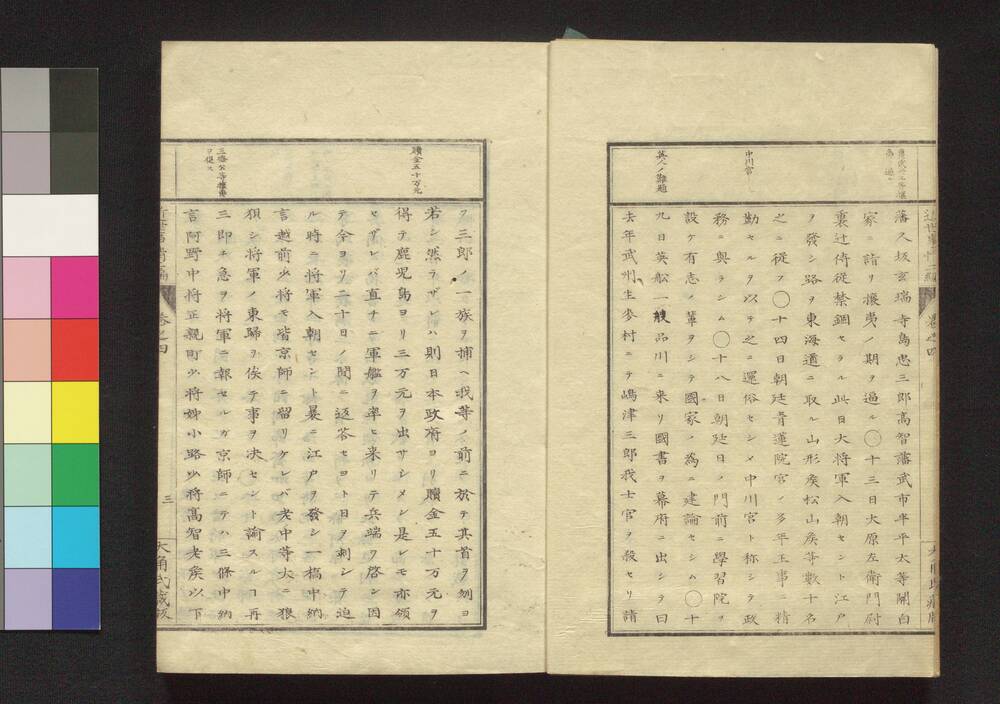 藩久坂玄瑞寺島忠三郎高智藩武市半平太等關白
家ニ詣リ攘夷ノ期ヲ過ル〇十三日大原左衛門尉
裏辻侍従禁錮セラル此日大将軍入朝セント江戸
ヲ發シ路ヲ東海道ニ取ル山形矦松山矦等數十名
之ニ從フ〇十四日朝廷青蓮院宮ノ多年王事ニ精
勤セルヲ以テ之ニ還俗セシメ中川宮ト称シテ政
務ニ與ラシム〇十八日朝廷日ノ門前ニ學習院ヲ
設ケ有志ノ輩ヲシテ國家ノ為ニ建論セシム〇十
九日英舩一艘品川ニ来リ國書ヲ幕府ニ出シテ曰
去年武州生麥村ニテ嶋津三郎我士官ヲ殺セリ請
中川宮
英人ノ難題
フ三郎ノ一族ヲ捕ヘ我等ノ前ニ於テ其首ヲ刎ヨ
若シ然ラザレハ則日本政府ヨリ贖金五十万元ヲ
得テ鹿児島ヨリ三万元ヲ出サシメン是レモ亦領
セザレバ直チニ軍艦ヲ率ヒ来リテ兵端ヲ啓ン因
テ今ヨリ二十日ノ間ニ返答セヨト日ヲ刺シテ迫
ル時ニ将軍入朝セント暴ニ江戸ヲ發シ一橋中納
言越前少将モ皆京師ニ留リケレバ老中等大ニ狼
狽シ将軍ノ東歸ヲ俟テ事ヲ决セント諭スルヿ再
三即チ急ヲ将軍ニ報セルガ京師ニテハ三條中納
言阿野中将正親町少将姉小路少将高智老矦以下
贖金五十万元
巻之四
三
大角氏蔵版